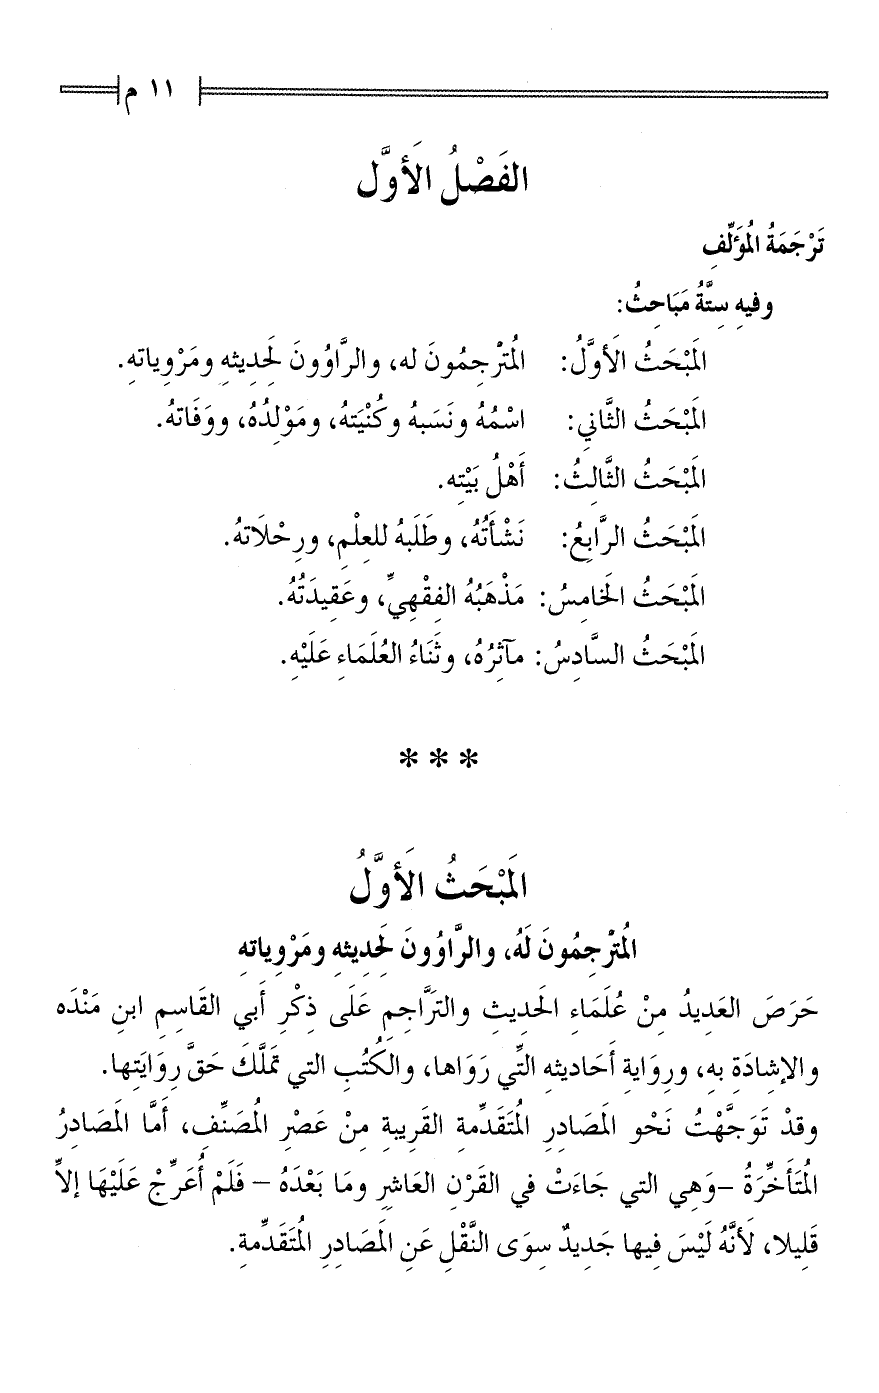 ١١ م
الفَصْلُ الَأوَّل
تَرْجَمَةُ المُؤَلِّفِ
وفيهِ سِتَّةُ مَبَاحِثُ:
المَبْحَثُ الَأوَّلُ: المُتَرْجِمُونَ له، والرَّاوُونَ لَحِدِيثِهِ ومَرْوِياتهِ.
المَبْحَثُ الثَّانِي: اسْمُهُ ونَسَبهُ وكُنْيَتهُ، ومَوْلِدُهُ، ووَفَاتهُ.
المَبْحَثُ الثَّالِثُ: أَهْلُ بَيْتِهِ.
المَبْحَثُ الرَّابِعُ: نَشْأَتُهُ، وطَلَبهُ للعِلْمِ، ورِحْلَاتهُ.
المَبْحَثُ الخَامِسُ: مَذْهَبُهُ الفِقْهِيِّ، وعَقِيدَتُهُ.
المَبْحَثُ السَّادِسُ: مآثِرُهُ، وثَنَاءُ العُلَمَاءِ عَلَيْهِ.
***
المَبْحَثُ الَأوَّلُ
المُتَرْجِمُونَ لَهُ، والرَّاوُونَ لَحِدِيثِهِ ومَرْوِياتهِ
حَرَصَ العَدِيدُ مِنْ عُلَمَاءِ الحَدِيثِ والتَرَّاجِمِ عَلَى ذِكْرِ أَبي القَاسِمِ ابنِ مَنْدَه
والإشادَةِ بِهِ، ورِوَايةِ أَحَادِيثهِ التِّي رَوَاها، والكُتُبِ التي تَملَّكَ حَقَّ رِوَايَتِها.
وقدْ تَوَجَّهْتُ نَحْوَ المَصَادِرِ المُتَقَدِّمةِ القَرِيبةِ مِنْ عَصْرِ المُصَنِّفِ، أَمَّا المَصَادِرُ
المُتَأخِّرَةُ -وَهِي التي جَاءَتْ في القَرْنِ العَاشِرِ ومَا بَعْدَهُ - فَلَمْ أُعَرِّجْ عَلَيْهَا إلاَّ
قَلِيلا، لَأنَّهُ لَيْسَ فِيها جَدِيدٌ سِوَى النَّقْلِ عَنِ المَصَادِرِ المُتَقَدِّمةِ.